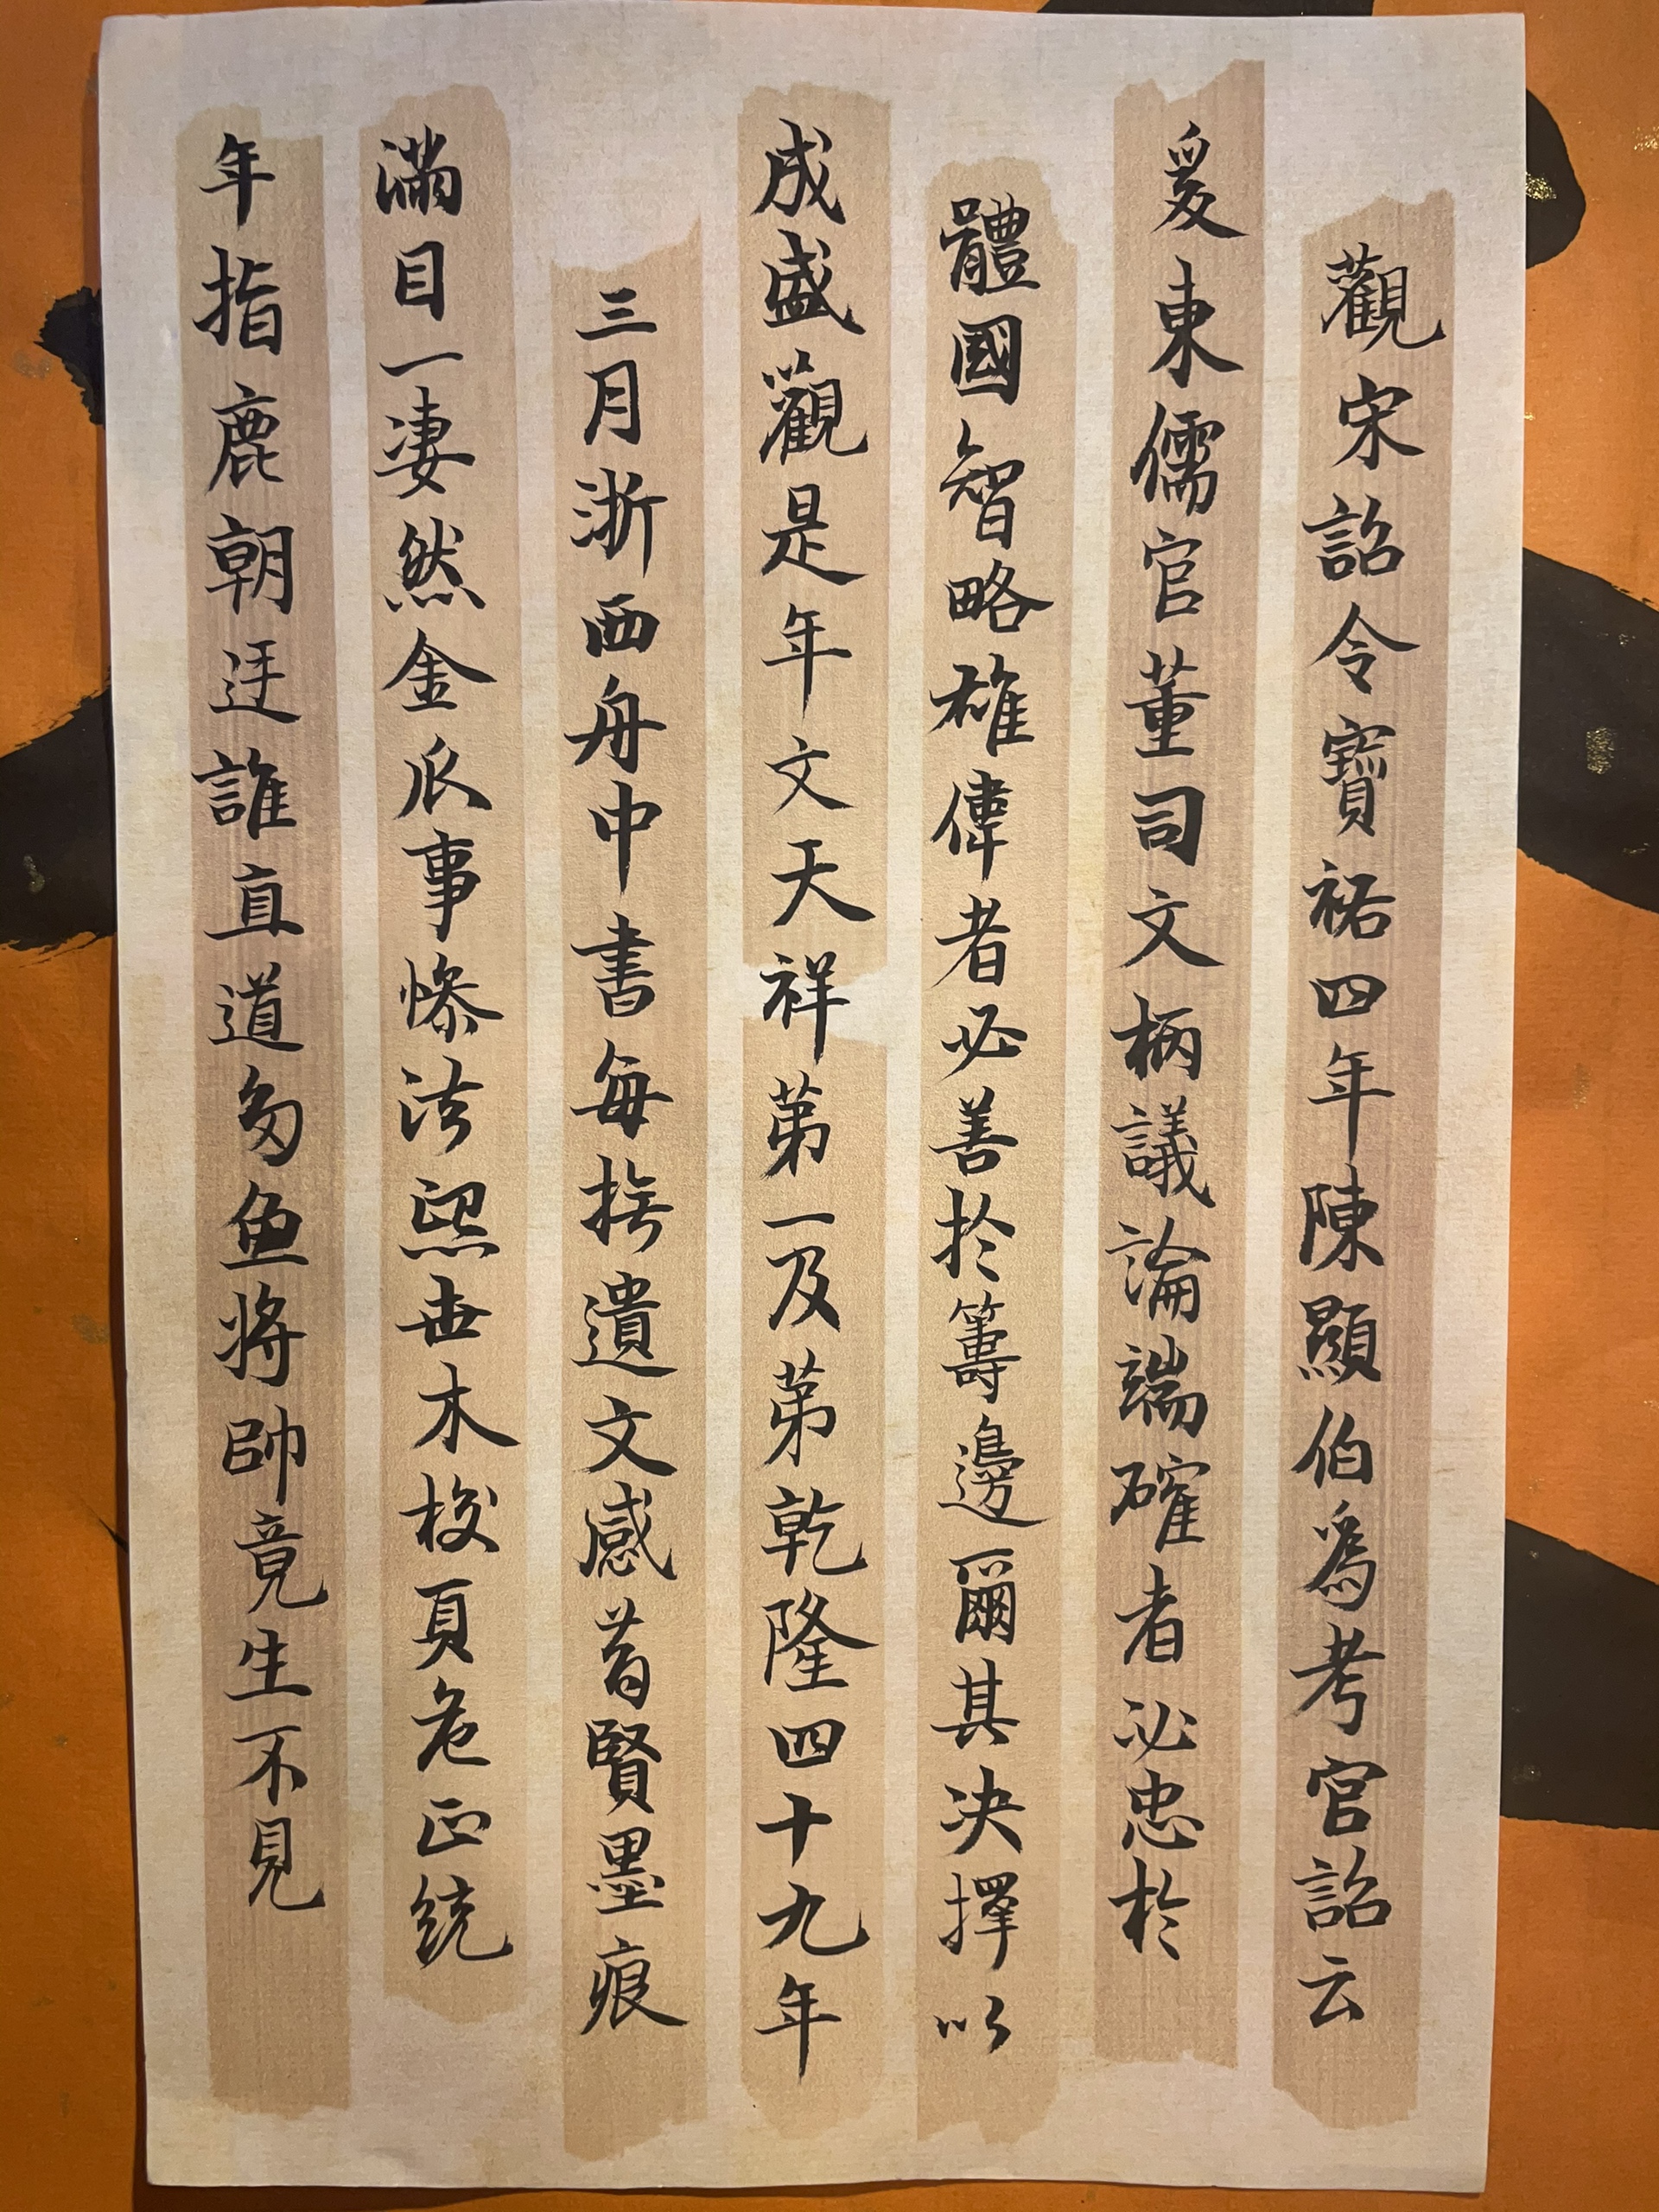 觀宋詔令寶祐四年陳顯伯爲考官詔云
爰東儒官董司文柄議論端確者必忠於
體國智略雄偉者必善於籌邊爾其决擇以
成盛觀是年文天祥第一及第乾隆四十九年
三月浙西舟中書每捨遺文感昔賢墨痕
滿目一淒然金瓜事慘法熙世木梭頁危正統
年指鹿朝廷誰直道多魚將帥竟生不見